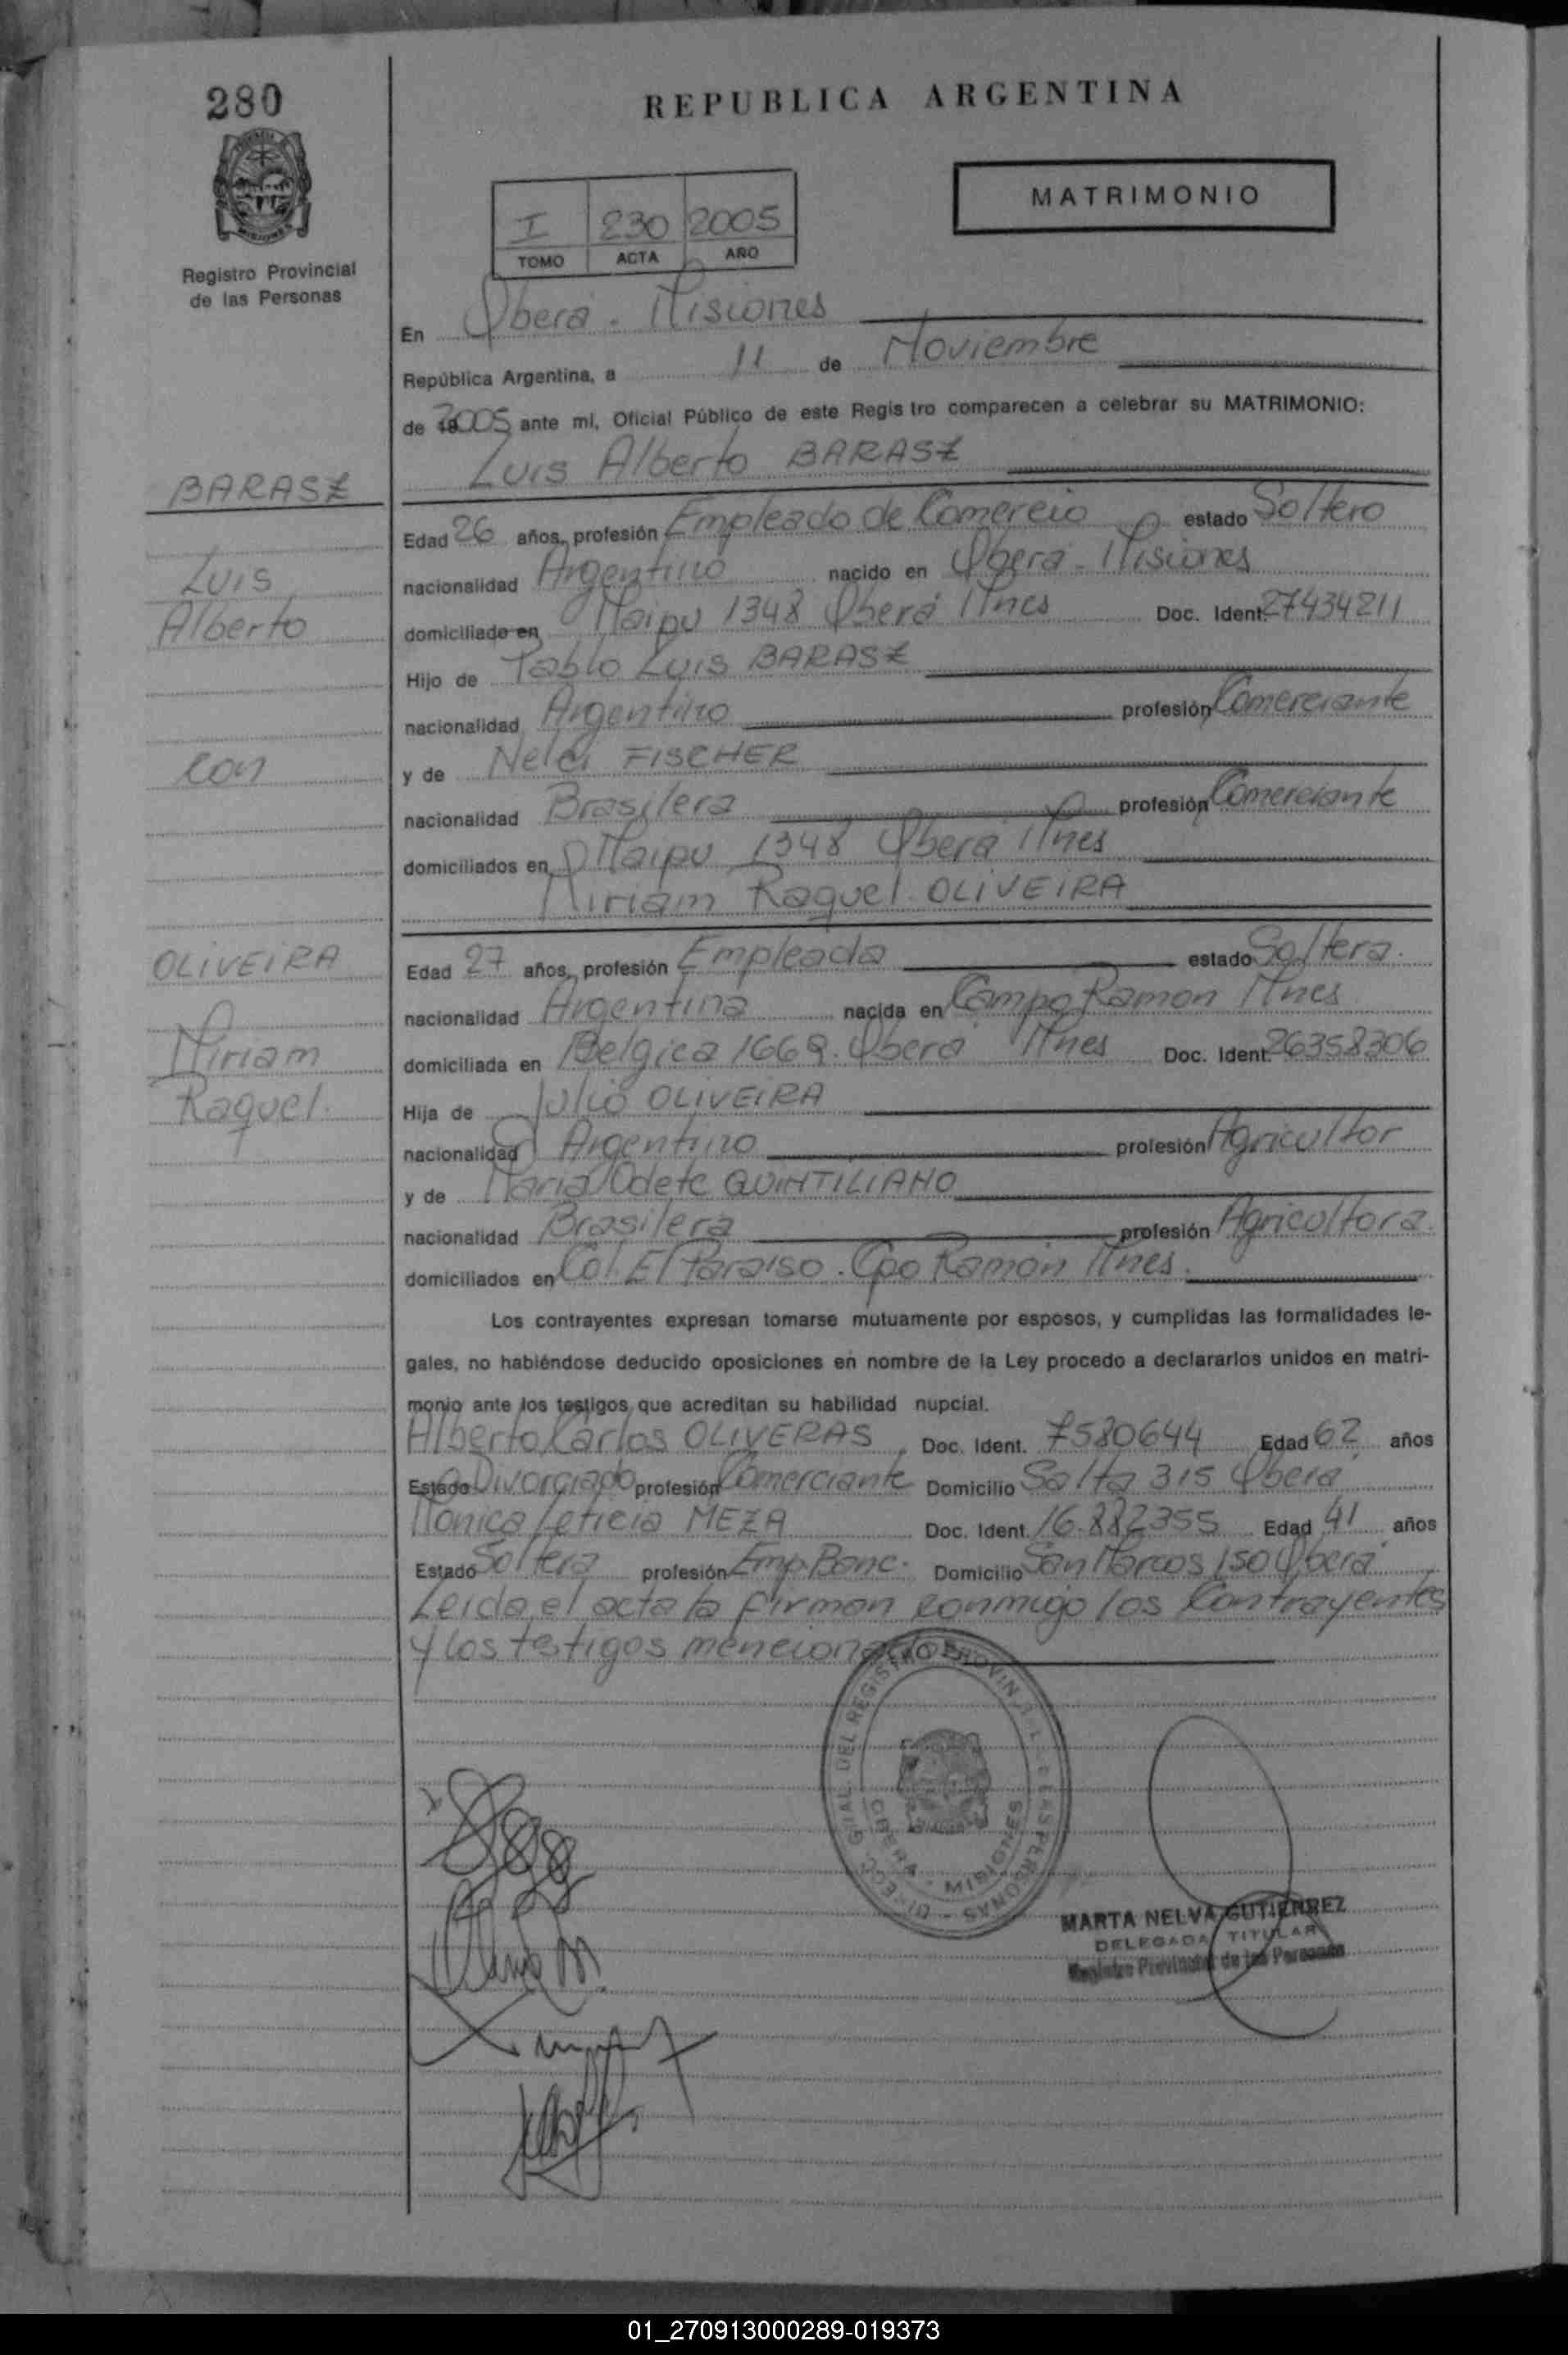 280
REPUBLICA ARGENTINA
MATRIMONIO
I 230 2005
TOMO ACTA AÑO
Registro Provincial
de las Personas
En Oberá - Misiones
República Argentina, a 11 de Noviembre
de 2005 ante mi, Oficial Público de este Registro comparecen a celebrar su MATRIMONIO:
Luis Alberto BARASZ
BARASZ
Luis
Alberto
con
OLIVEIRA
Miriam
Raquel.
Edad 26 años, profesión Empleado de Comercio estado Soltero
nacionalidad Argentino nacido en Oberá - Misiones
domiciliado en Maipu 1348 Oberá Mnes Doc. Ident. 27434211
Hijo de Pablo Luis BARASZ
nacionalidad Argentino profesión Comerciante
y de Nelci FISCHER
nacionalidad Brasilera profesión Comerciante
domiciliados en Maipu 1348 Oberá Mnes
Miriam Raquel OLIVEIRA
Edad 27 años, profesión Empleada estado Soltera.
nacionalidad Argentina nacida en Campo Ramon Mnes
domiciliada en Belgica 1669. Oberá Mnes Doc. Ident. 26358306
Hija de Julio OLIVEIRA
nacionalidad Argentino profesión Agricultor
y de Maria Odete QUINTILIANO
nacionalidad Brasilera profesión Agricultora.
domiciliados en Col. El Paraiso. Cpo Ramón Mnes.
Los contrayentes expresan tomarse mutuamente por esposos, y cumplidas las formalidades le-
gales, no habiéndose deducido oposiciones en nombre de la Ley procedo a declararlos unidos en matri-
monio ante los testigos que acreditan su habilidad nupcial.
Alberto Carlos OLIVERAS Doc. Ident. 7580644 Edad 62 años
Estado Divorciado profesión Comerciante Domicilio Salta 315 Oberá
Monica Leticia MEZA Doc. Ident. 16.882355 Edad 41 años
Estado Soltera profesión Emp. Banc. Domicilio San Marcos 150 Oberá
Leida el acta la firman conmigo los Contrayentes
y los testigos mencionados
DIRECC. GRAL. DEL REGISTRO PROVINCIAL DE LAS PERSONAS
OBERA - MISIONES
MARTA NELVA GUTIERREZ
DELEGADA TITULAR
Registro Provincial de las Personas
01_270913000289-019373